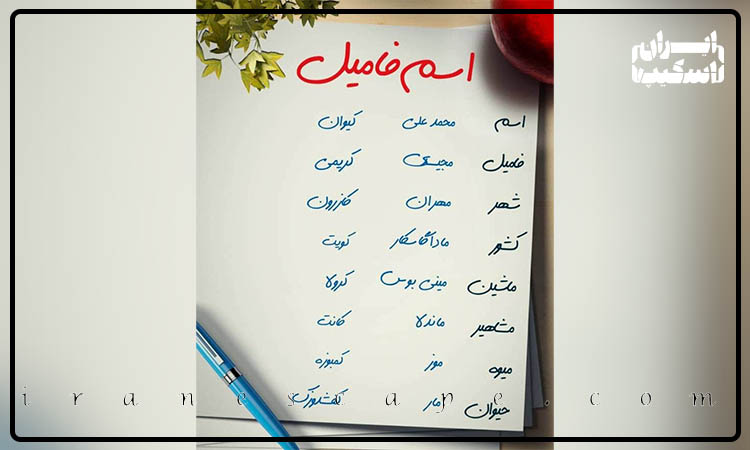 ایران
اسکیپ
اسم فامیل
اسم محمد علی کیوان
فامیل مجیدی کریمی
شهر مهران کازرون
کشور ماداگاسکار کویت
ماشین مینی بوس کرولا
مشاهیر ماندلا کانت
میوه موز کمبوزه
حیوان مار کفشدوزک
iranescape.com